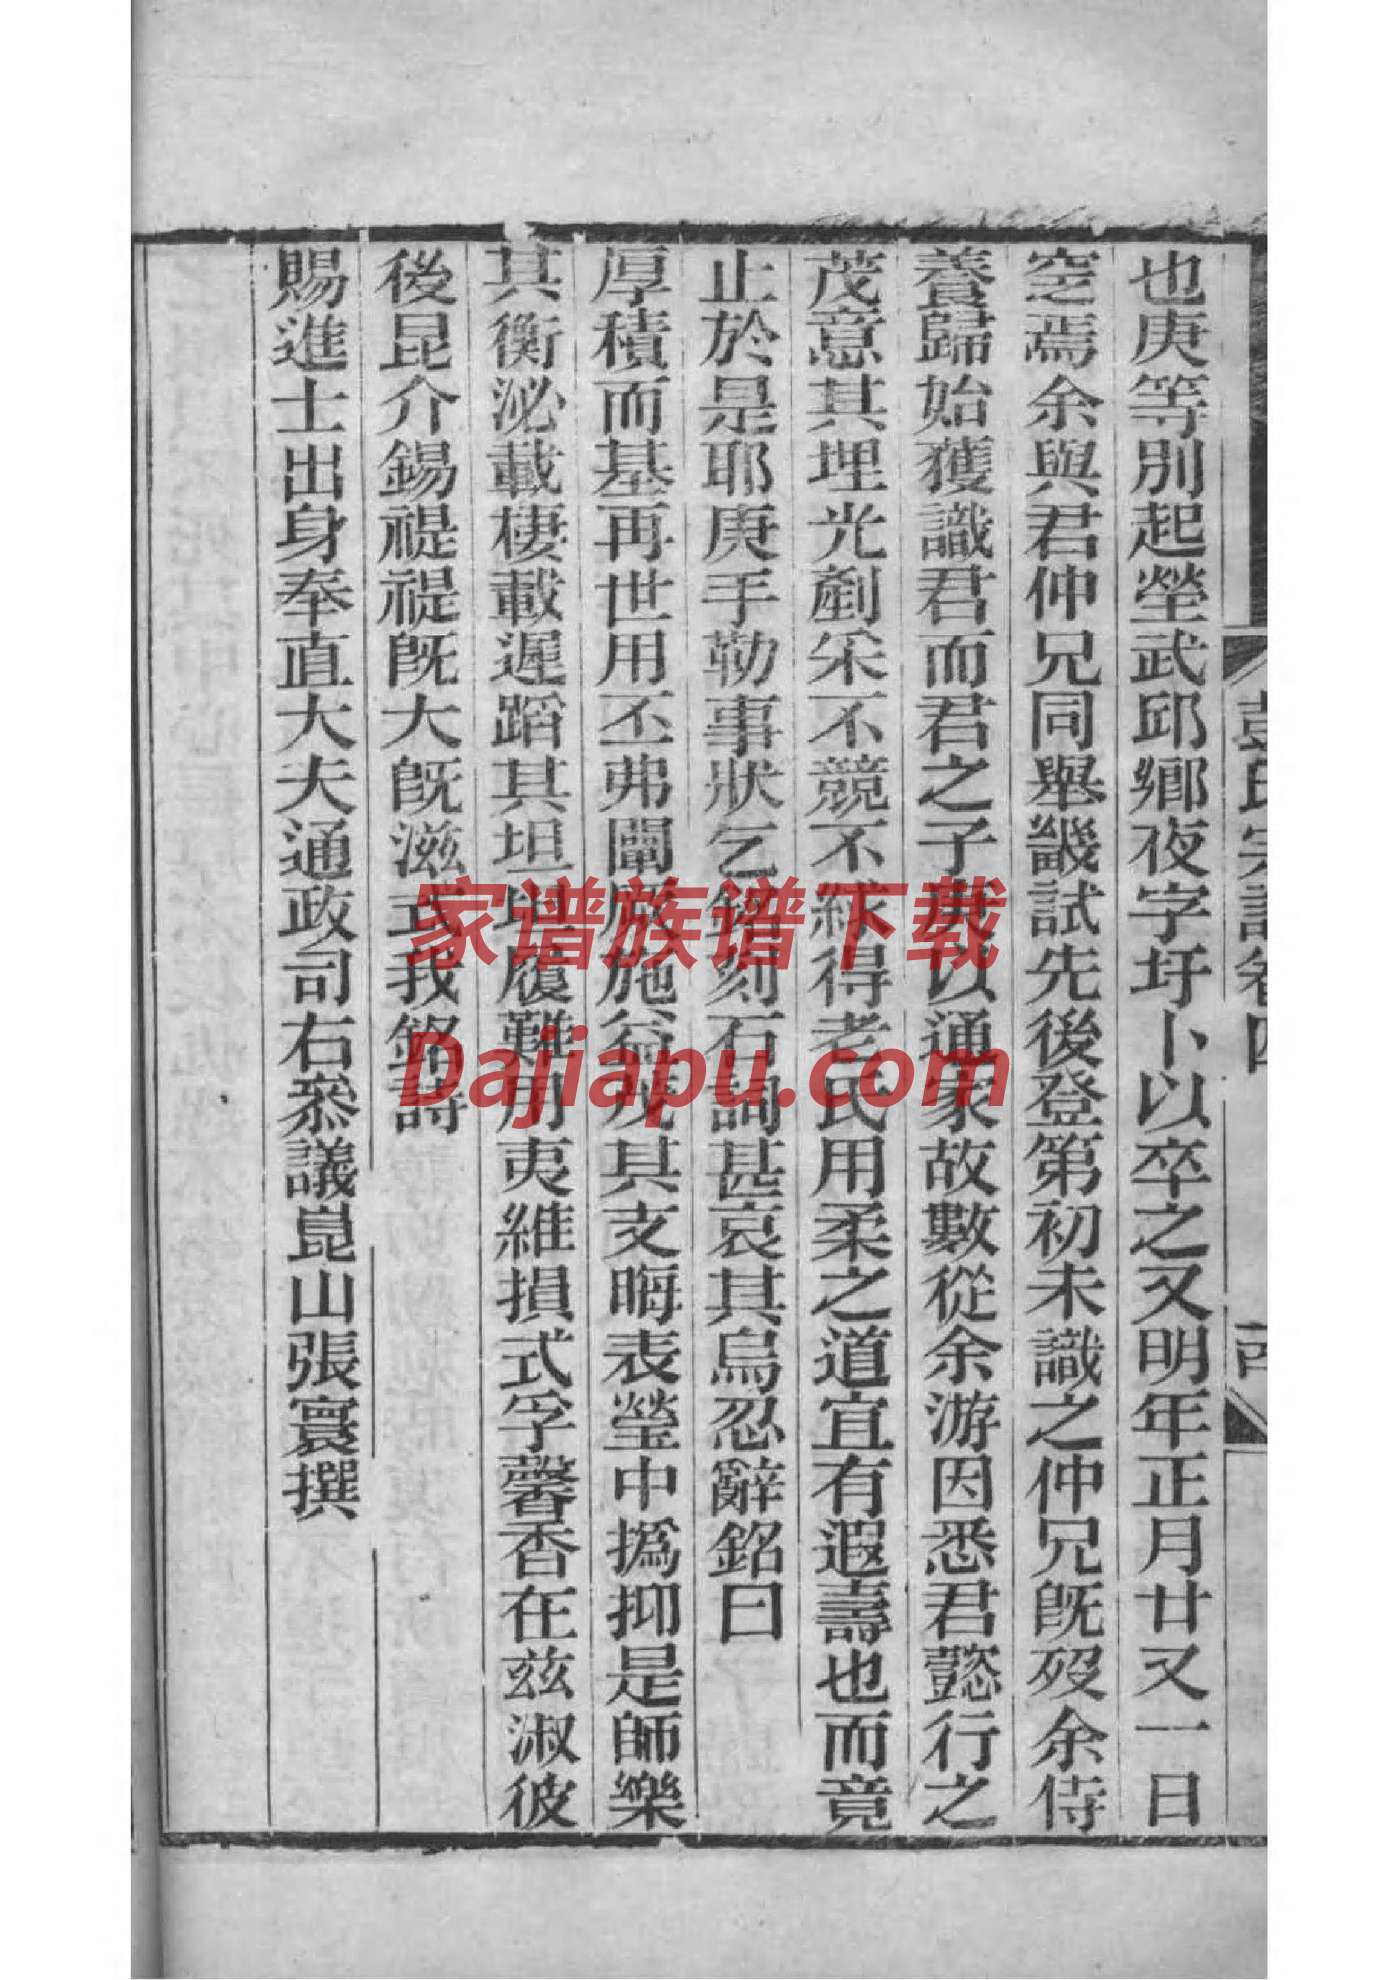 也庚等別起塋武邱鄉夜字圩卜以卒之又明年正月廿又一日
窆焉余與君仲兄同舉畿試先後登第初未識之仲兄既歿余侍
養歸始獲識君而君之子庚以通家故數從余游因悉君懿行之
茂意其埋光剷采不競不絿得老氏用柔之道宜有遐壽也而竟
止於是耶庚手勒事狀乞銘刻石詞甚哀其烏忍辭銘曰
厚積而基再世用丕弗闡厥施益茂其支晦表瑩中撝抑是師樂
其衡泌載棲載遲蹈其坦坦履難用夷維損式孚馨香在茲淑彼
後昆介錫禔禔既大既滋式我銘詩
賜進士出身奉直大夫通政司右叅議崑山張寰撰
家谱族谱下载
Dajiapu.com